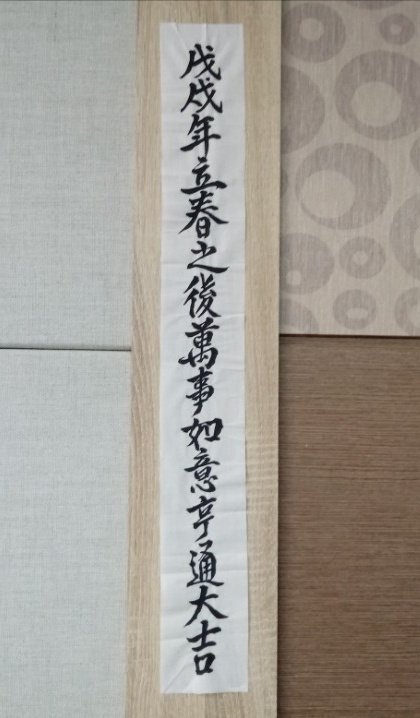 戊戌年立春之後萬事如意亨通大吉